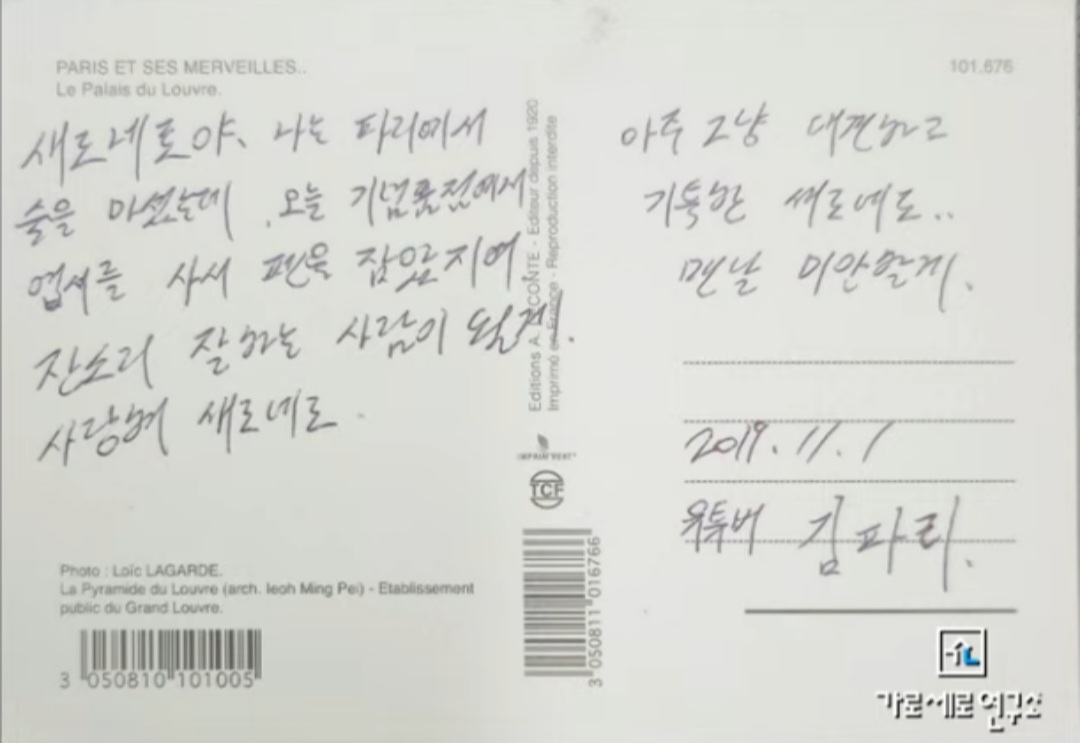 PARIS ET SES MERVEILLES..
Le Palais du Louvre.
101.676
새로네로야. 나는 파리에서
술을 마셨는데. 오늘 기념품점에서
엽서를 사서 펜을 잡았지여.
잔소리 잘하는 사람이 될게.
사랑해 새로네로.
Editions A. CONTE - Editeur depuis 1920
Imprimé en France - Reproduction interdite
IMPRIM'VERT
TCF
3 050811 016766
아주 그냥 대견하고
기특한 새로네로..
맨날 미안할게.
2019. 11. 1
유투버 김파리.
Photo : Loïc LAGARDE.
La Pyramide du Louvre (arch. Ieoh Ming Pei) - Etablissement
public du Grand Louvre.
3 050810 101005
가로세로연구소